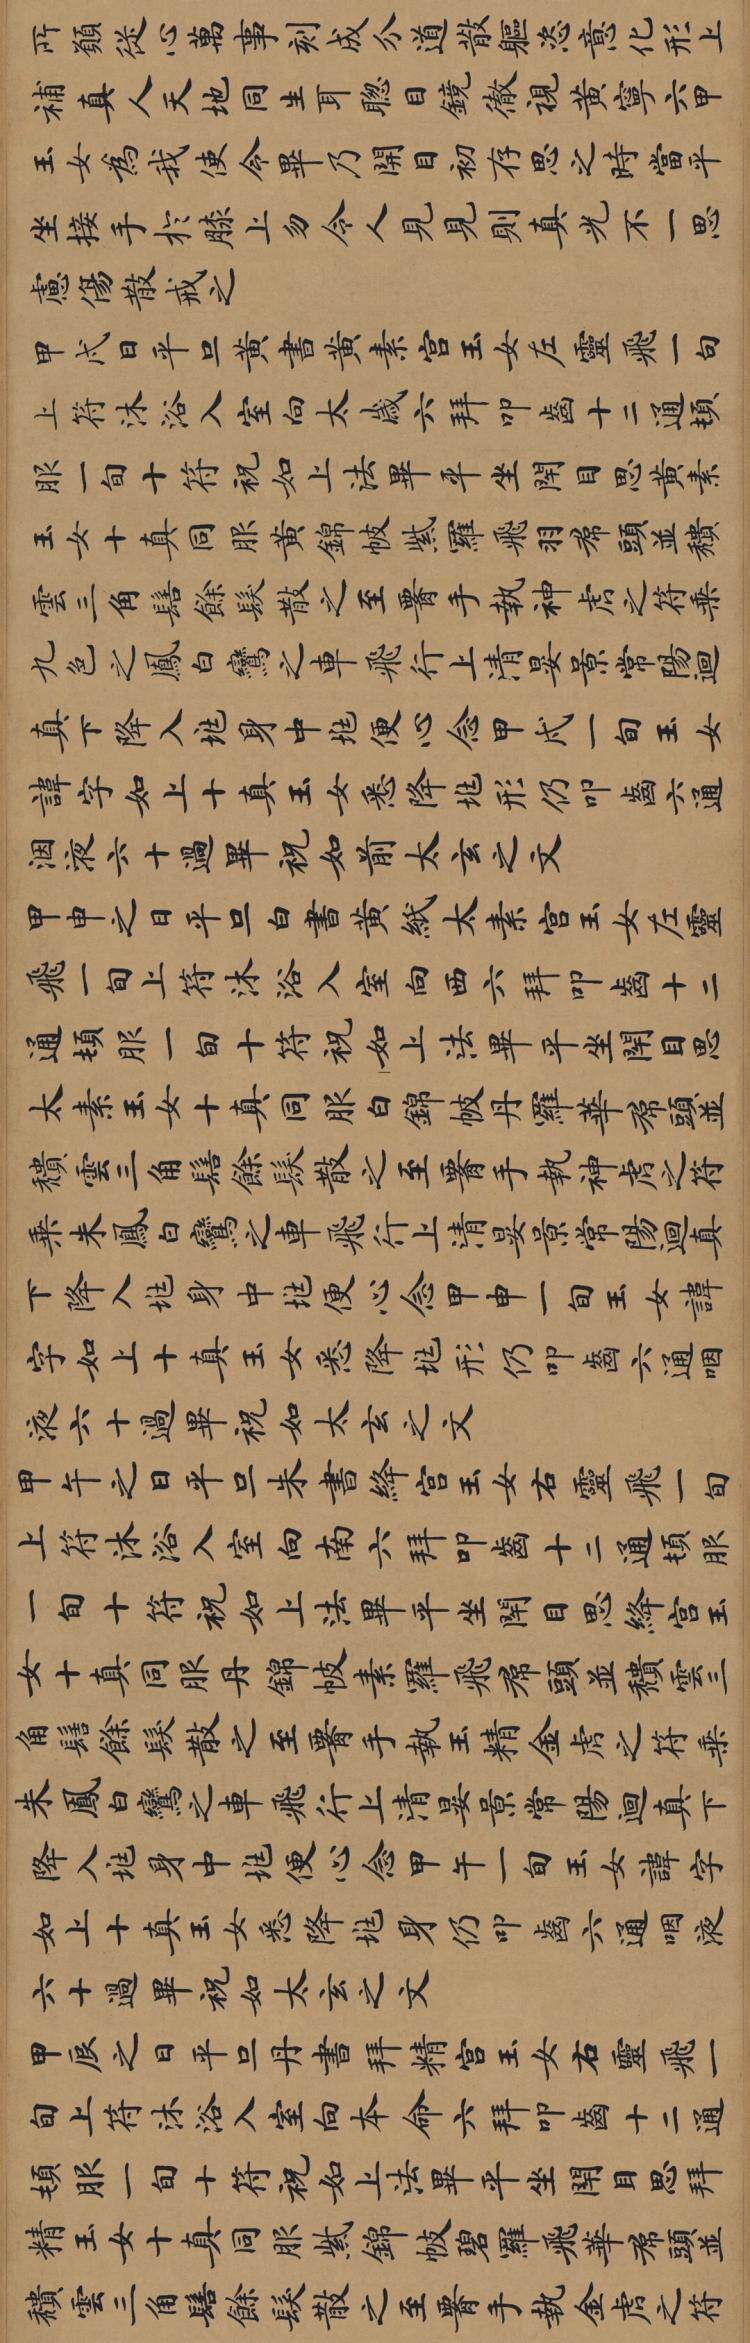 所願從心萬事剋成分道散軀恣意化形上
補真人天地同生耳聰目鏡徹視黃寧六甲
玉女為我使令畢乃開目初存思之時當平
坐接手於膝上勿令人見見則真光不一思
慮傷散戒之
甲戌日平旦黃書黃素宮玉女左靈飛一旬
上符沐浴入室向太歲六拜叩齒十二通頓
服一旬十符祝如上法畢平坐閉目思黃素
玉女十真同服黃錦帔紫羅飛羽帬頭並穨
雲三角髻餘髮散之至腰手執神虎之符乘
九色之鳳白鸞之車飛行上清晏景常陽迴
真下降入兆身中兆便心念甲戌一旬玉女
諱字如上十真玉女悉降兆形仍叩齒六通
咽液六十過畢祝如前太玄之文
甲申之日平旦白書黃紙太素宮玉女左靈
飛一旬上符沐浴入室向西六拜叩齒十二
通頓服一旬十符祝如上法畢平坐閉目思
太素玉女十真同服白錦帔丹羅華帬頭並
穨雲三角髻餘髮散之至腰手執神虎之符
乘朱鳳白鸞之車飛行上清晏景常陽迴真
下降入兆身中兆便心念甲申一旬玉女諱
字如上十真玉女悉降兆形仍叩齒六通咽
液六十過畢祝如太玄之文
甲午之日平旦朱書絳宮玉女右靈飛一旬
上符沐浴入室向南六拜叩齒十二通頓服
一旬十符祝如上法畢平坐閉目思絳宮玉
女十真同服丹錦帔素羅飛帬頭並穨雲三
角髻餘髮散之至腰手執玉精金虎之符乘
朱鳳白鸞之車飛行上清晏景常陽迴真下
降入兆身中兆便心念甲午一旬玉女諱字
如上十真玉女悉降兆身仍叩齒六通咽液
六十過畢祝如太玄之文
甲辰之日平旦丹書拜精宮玉女右靈飛一
旬上符沐浴入室向本命六拜叩齒十二通
頓服一旬十符祝如上法畢平坐閉目思拜
精玉女十真同服紫錦帔碧羅飛華帬頭並
穨雲三角髻餘髮散之至腰手執金虎之符